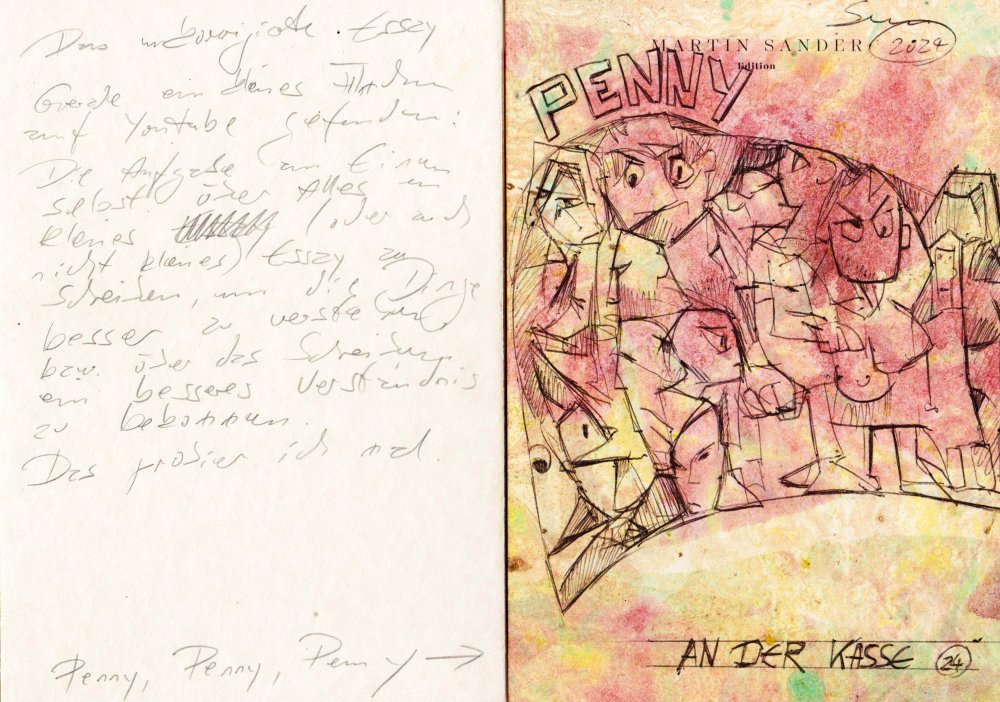 Das Essay
Gerade ein kleines
auf Youtube gefunden:
Die Aufgabe an Einen
selbst über Alles ein
kleines (oder auch
nicht kleines) Essay zu
schreiben, um die Dinge
besser zu verstehen,
bzw. über das Schreiben
ein besseres Verständnis
zu bekommen.
Das probier ich mal.
Penny, Penny, Penny →
2024
MARTIN SANDER
Edition
PENNY
AN DER KASSE 24